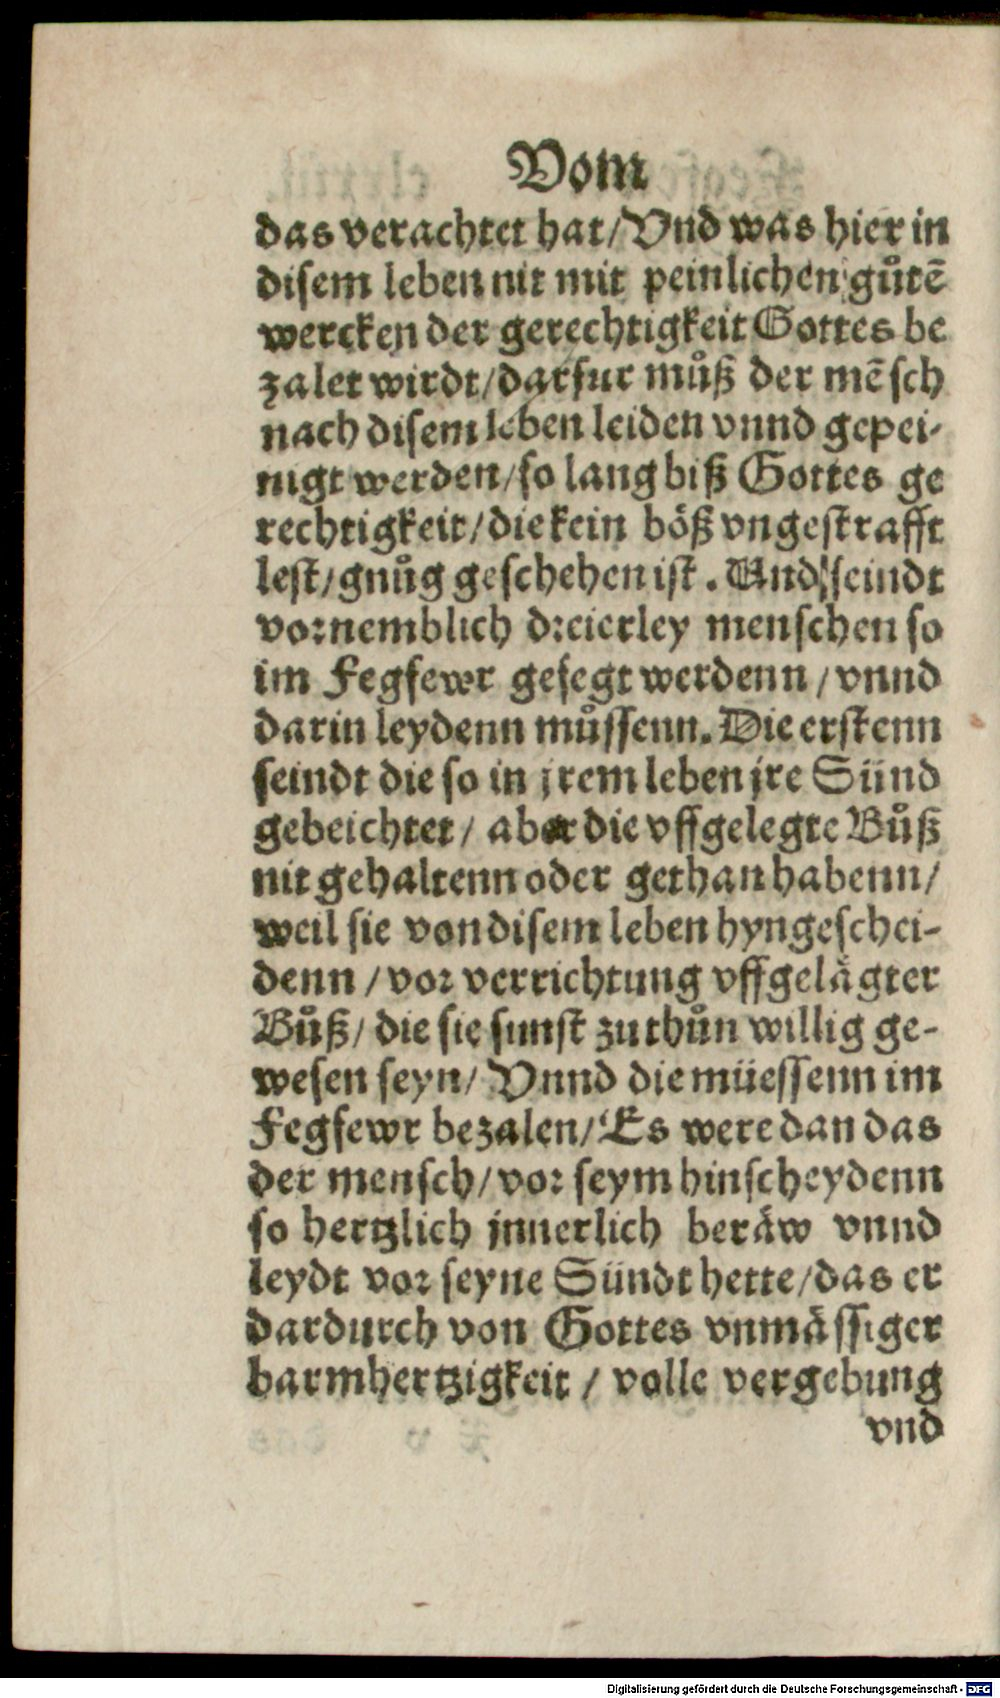 Vom
das verachtet hat/ Vnd was hier in
disem leben nit mit peinlichen gůtẽ
wercken der gerechtigkeit Gottes be
zalet wirdt/ darfur můß der mẽsch
nach disem leben leiden vnnd gepei-
nigt werden/ so lang biß Gottes ge
rechtigkeit/ die kein böß vngestrafft
lest/ gnůg geschehen ist. Und seindt
vornemblich dreierley menschen so
im Fegfewr gefegt werdenn/ vnnd
darin leydenn můssenn. Die erstenn
seindt die so in jrem leben jre Sünd
gebeichtet/ aber die vffgelegte Bůß
nit gehaltenn oder gethan habenn/
weil sie von disem leben hyngeschei-
denn/ vor verrichtung vffgelägter
Bůß/ die sie sunst zu thůn willig ge-
wesen seyn/ Vnnd die müessenn im
Fegfewr bezalen/ Es were dan das
der mensch/ vor seym hinscheydenn
so hertzlich jnnerlich beräw vnnd
leydt vor seyne Sündt hette/ das er
dardurch von Gottes vnmässiger
barmhertzigkeit/ volle vergebung
vnd
Digitalisierung gefördert durch die Deutsche Forschungsgemeinschaft - DFG